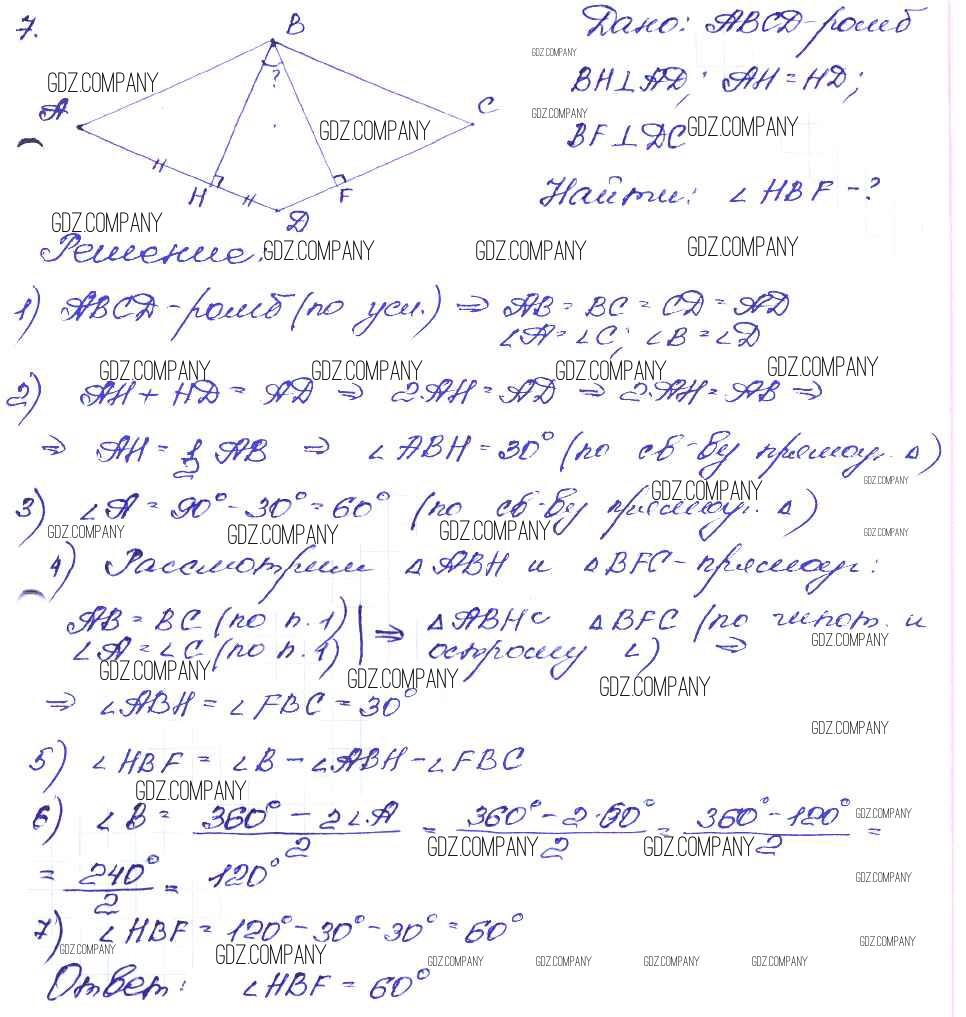 7.
B
?
A
C
H
F
D
Дано: ABCD-ромб
BH⊥AD; AH=HD;
BF⊥DC
Найти: ∠HBF-?
Решение:
1) ABCD-ромб (по усл.) ⇒ AB=BC=CD=AD
∠A=∠C; ∠B=∠D
2) AH+HD=AD ⇒ 2·AH=AD ⇒ 2·AH=AB ⇒
⇒ AH = 1/2 AB ⇒ ∠ABH=30° (по св-ву прямоуг. △)
3) ∠A=90°-30°=60° (по св-ву прямоуг. △)
4) Рассмотрим △ABH и △BFC-прямоуг:
AB=BC (по п.1) | ⇒ △ABH= △BFC (по гипот. и
∠A=∠C (по п.1) острому ∠) ⇒
⇒ ∠ABH=∠FBC=30°
5) ∠HBF=∠B-∠ABH-∠FBC
6) ∠B= (360°-2∠A)/2 = (360°-2·60°)/2 = (360°-120°)/2 =
= 240°/2 = 120°
7) ∠HBF=120°-30°-30°=60°
Ответ: ∠HBF=60°
GDZ.COMPANY